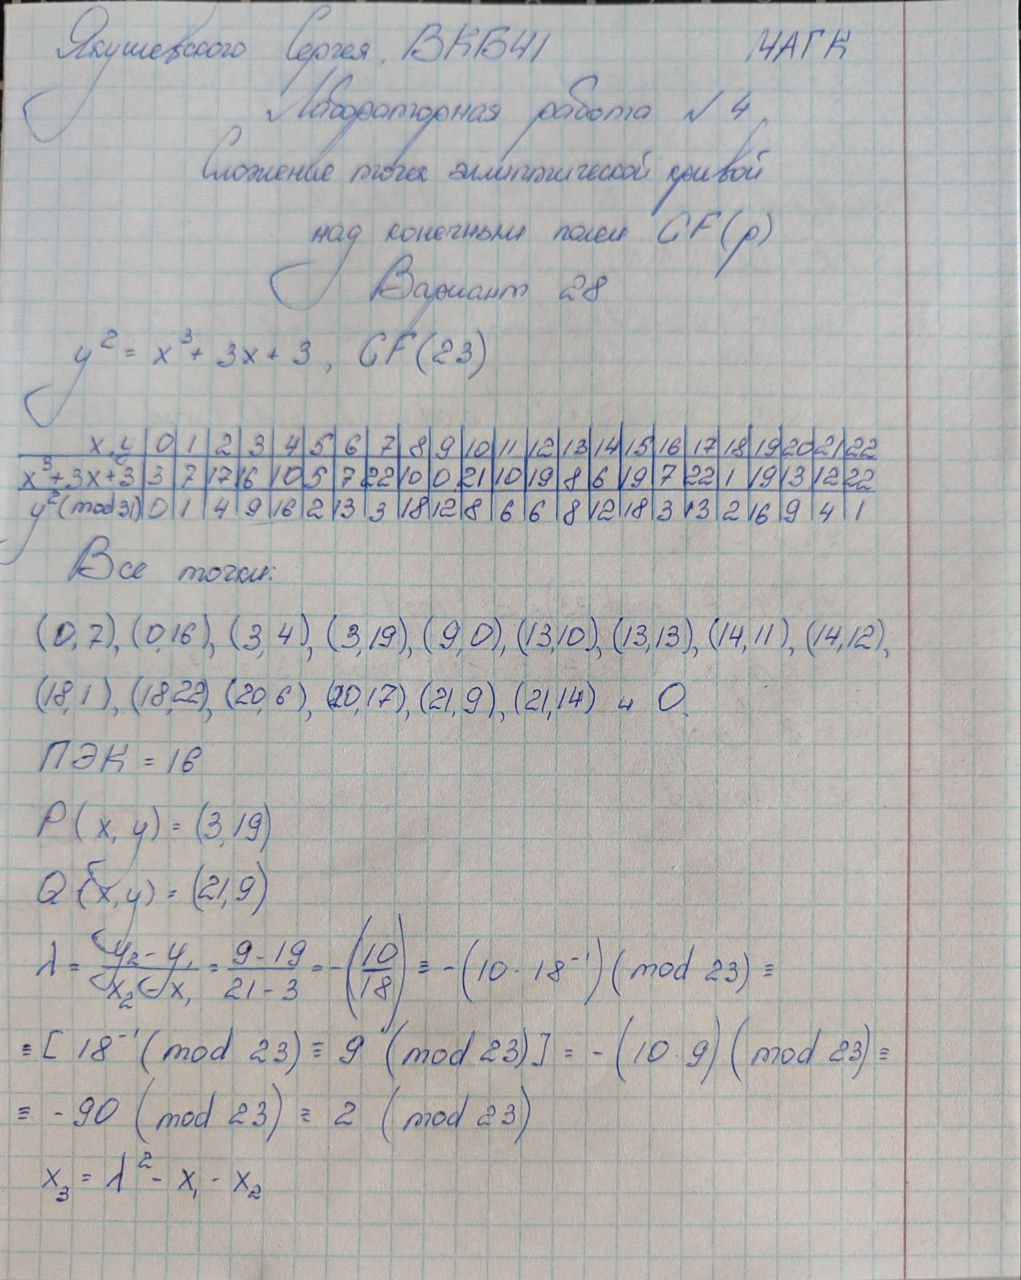 Якушевского Сергея, ВКБ41 ЧАГК
Лабораторная работа №4
Сложение точек эллиптической кривой
над конечным полем GF(p)
Вариант 28
y² = x³ + 3x + 3, GF(23)
x,y 0 1 2 3 4 5 6 7 8 9 10 11 12 13 14 15 16 17 18 19 20 21 22
x³+3x+3 3 7 17 16 10 5 7 22 10 0 21 10 19 8 6 19 7 22 1 19 13 12 22
y²(mod 31) 0 1 4 9 16 2 13 3 18 12 8 6 6 8 12 18 3 13 2 16 9 4 1
Все точки:
(0,7), (0,16), (3,4), (3,19), (9,0), (13,10), (13,13), (14,11), (14,12),
(18,1), (18,22), (20,6), (20,17), (21,9), (21,14) и O.
ПЭК = 16
P(x,y) = (3,19)
Q(x,y) = (21,9)
λ = (y₂ - y₁)/(x₂ - x₁) = (9 - 19)/(21 - 3) = -(10/18) ≡ -(10 · 18⁻¹)(mod 23) ≡
≡ [18⁻¹ (mod 23) ≡ 9 (mod 23)] = -(10 · 9)(mod 23) ≡
≡ -90 (mod 23) ≡ 2 (mod 23)
x₃ = λ² - x₁ - x₂